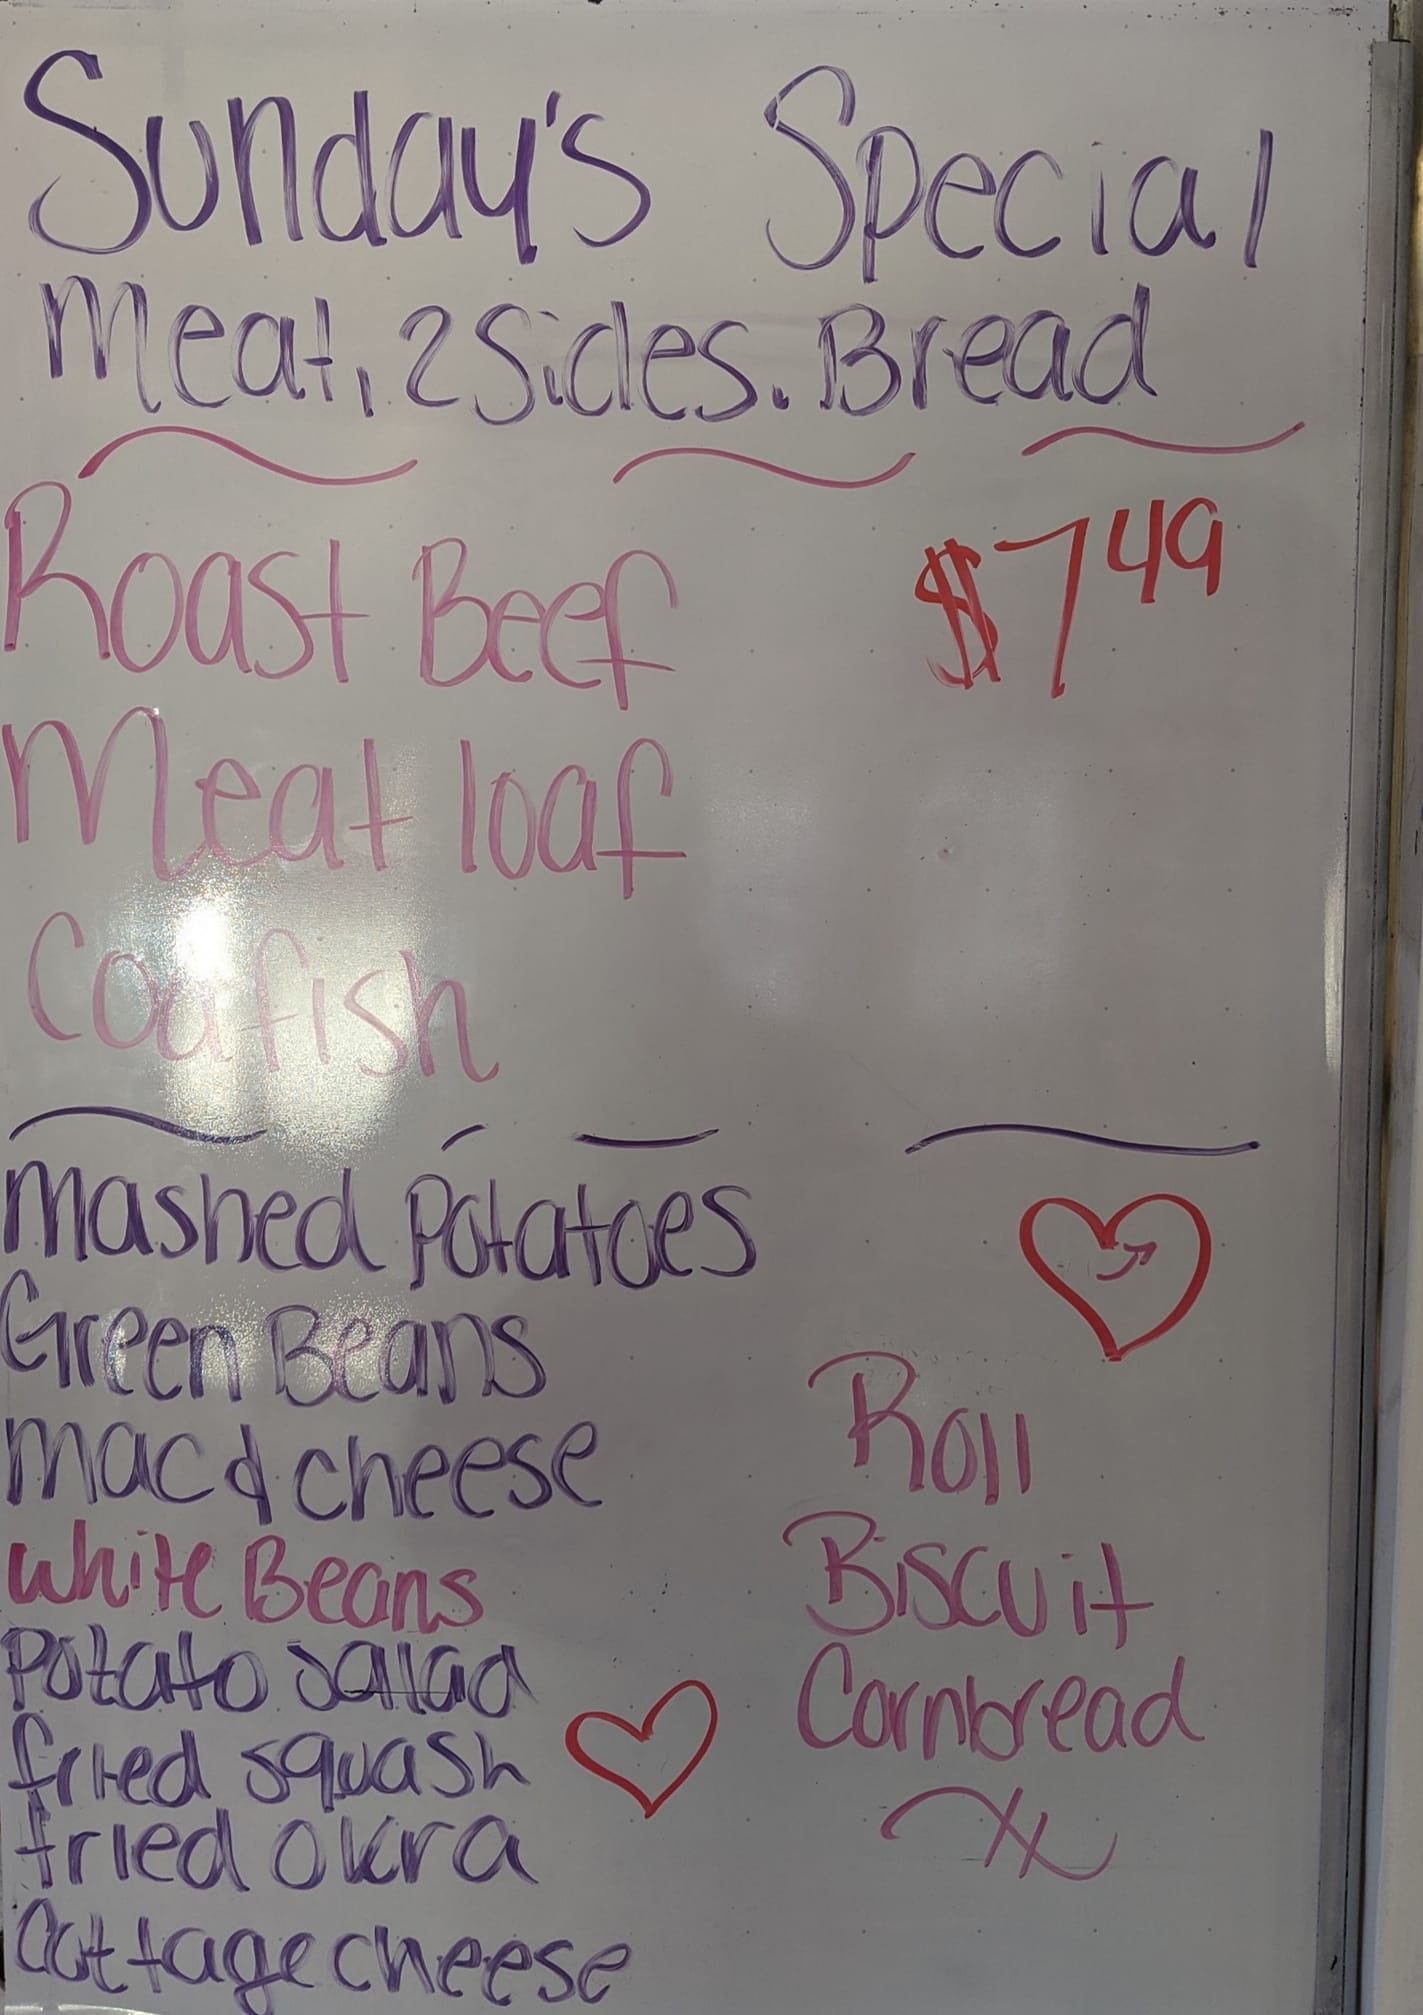 Sunday's Special
Meat, 2 Sides. Bread
Roast Beef $7 49
Meat loaf
Codfish
Mashed Potatoes
Green Beans
Mac & cheese
White Beans
Potato salad
fried squash
fried okra
Cottage cheese
Roll
Biscuit
Cornbread